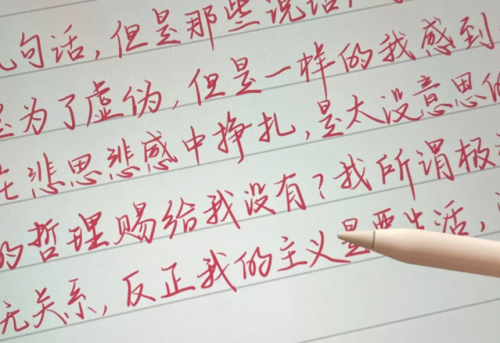 句话，但是那些说话
为了虚伪，但是一样的我感到
悲思悲感中挣扎，是太没意思
的哲理赐给我没有？我所谓极
无关系，反正我的主义是要生活，